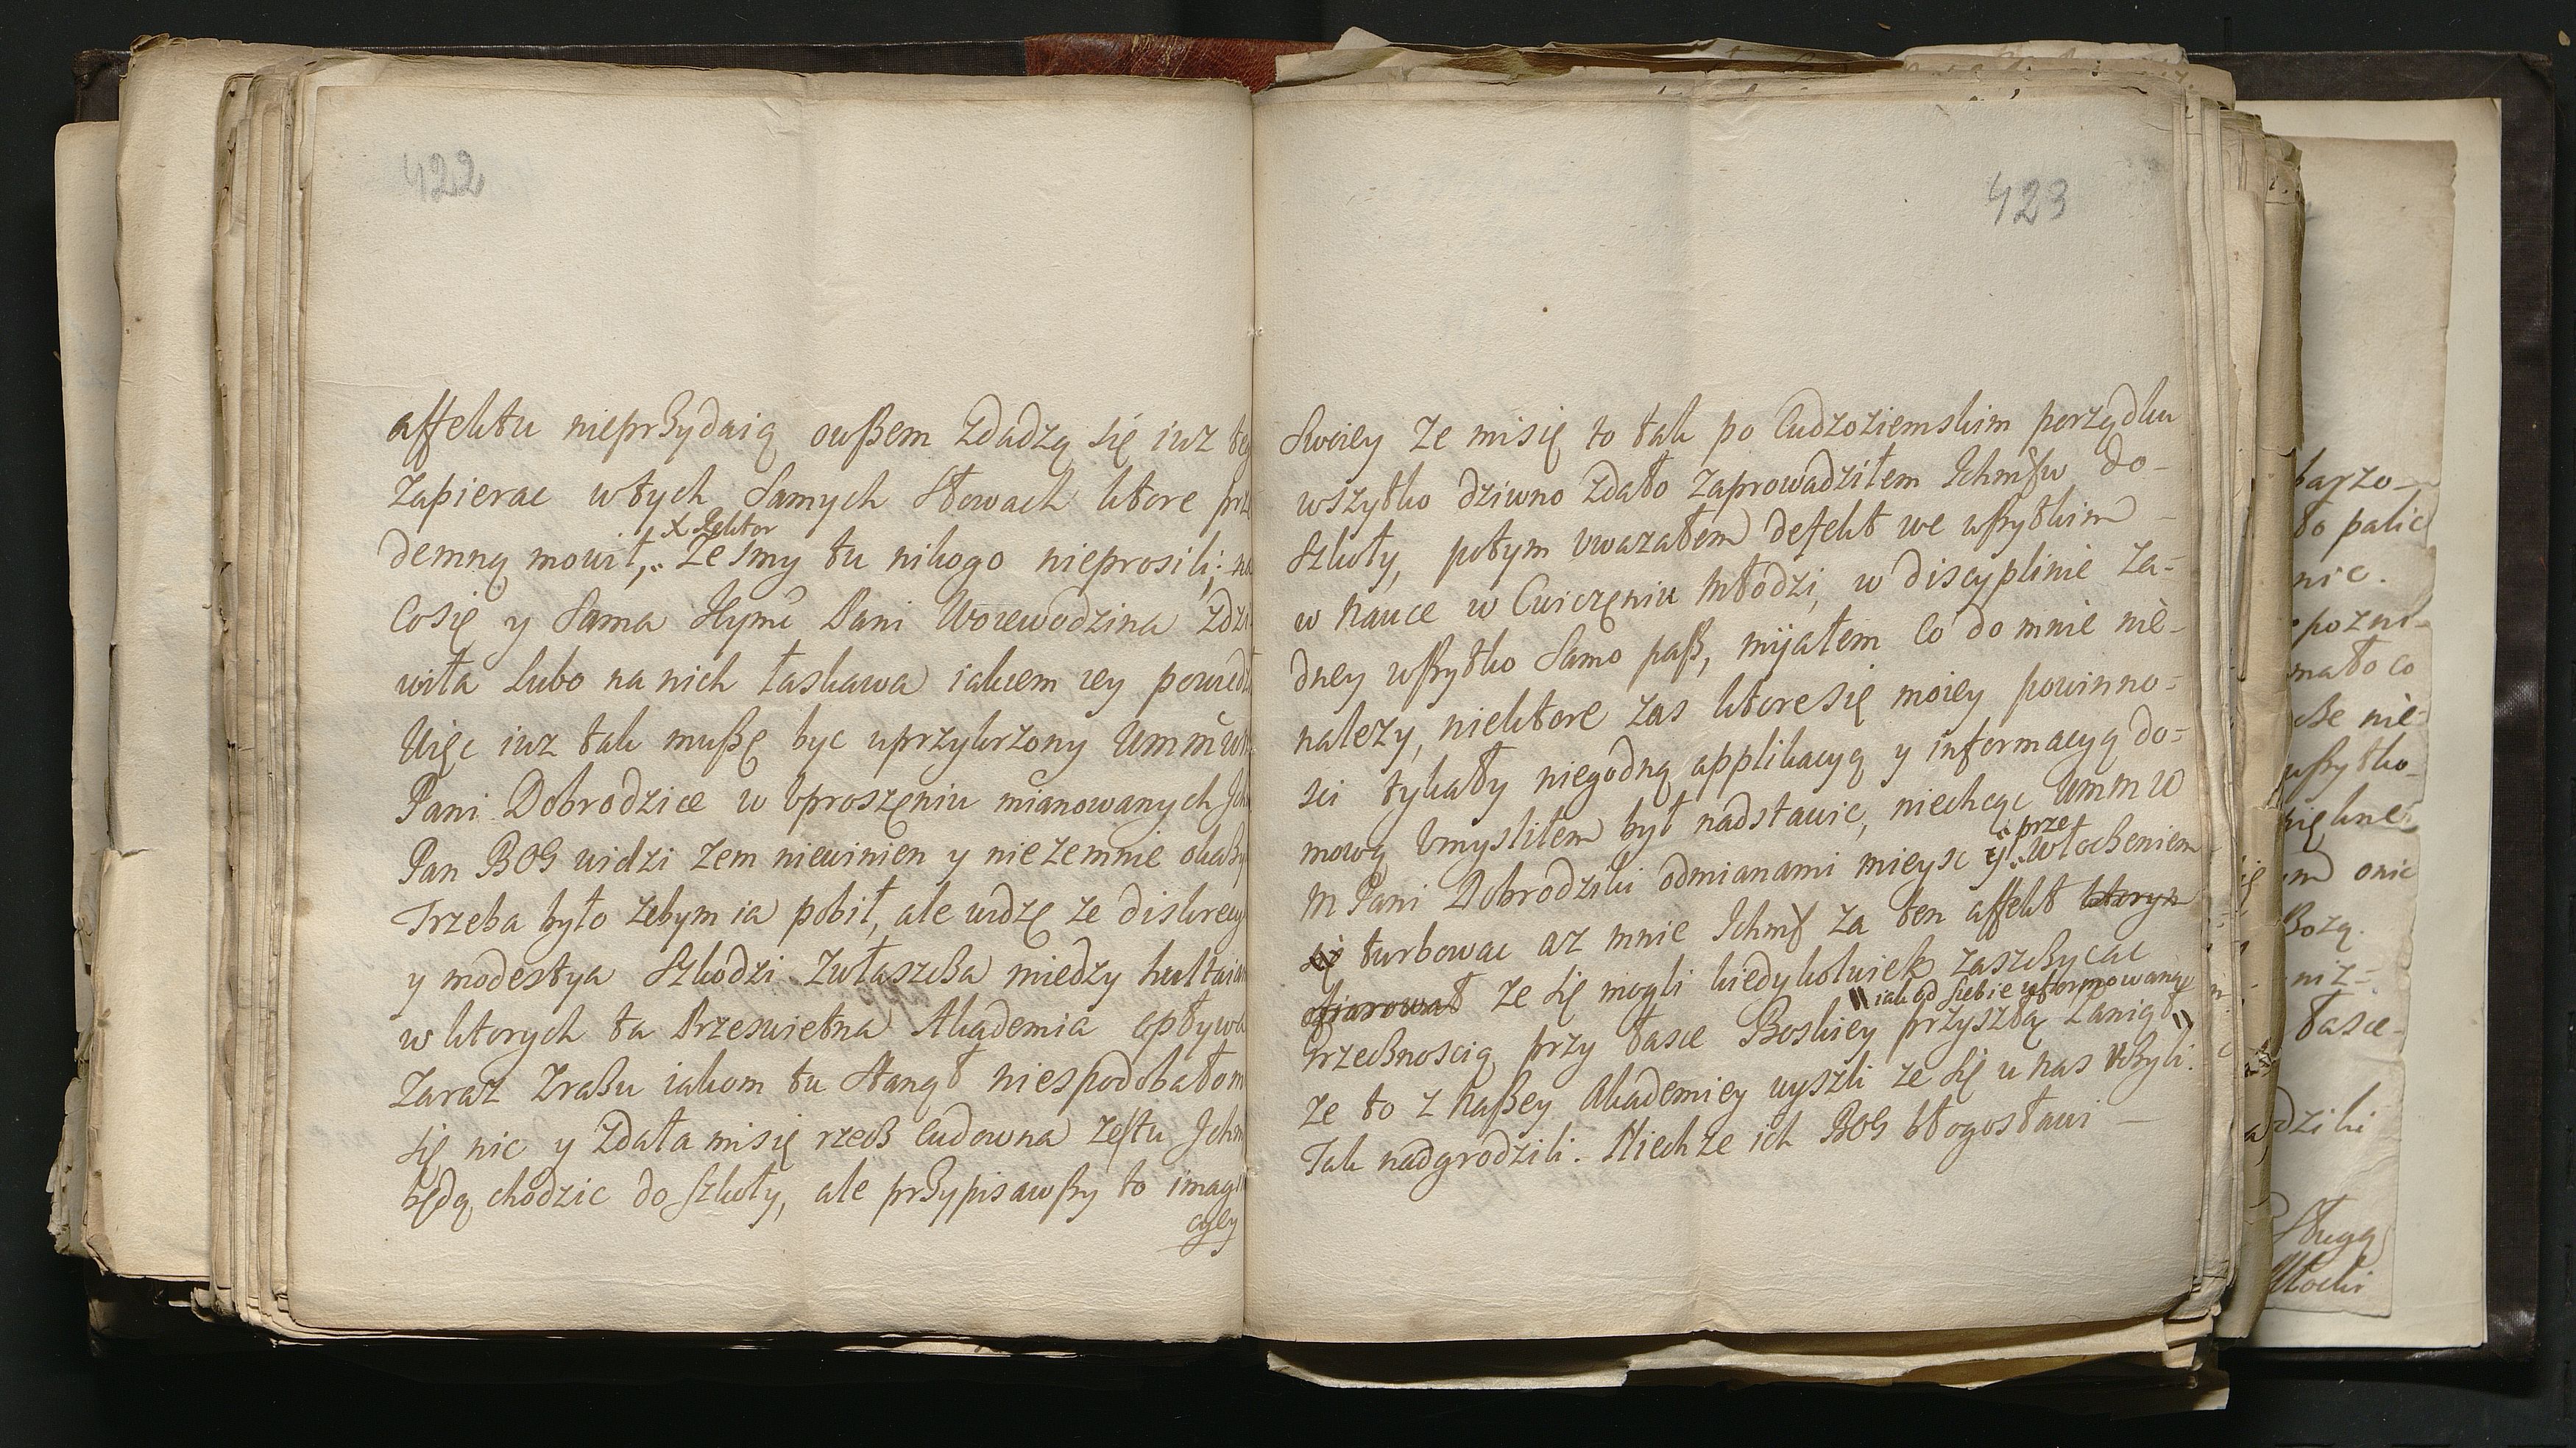 422
affektu nieprßydaią owßem zdadzą się iuz teg
Zapierac wtych Samych Słowach ktore prze
x Rektor
demną mowił, Ze smy tu nikogo nieprosili; na
Cosię y Sama Jeymć Pani Woiewodzina Zdzi
wiła lubo na nich łaskawa iakiem iey powiedz
Więc iuz tak mußę byc uprzykrzony Ummw
Pani Dobrodzice w Uproszęniu mianowanych Ich
Pan BOG widzi zem niewinien y nie zemnie okaży
Trzeba było zebym ia pobił, ale widzę ze diskrecy
y modestya Szkodzi Zwłaszcßa miedzy hultaiam
w ktorych ta Przeswietna Akademia opływa
Zaraz Zraßu iakom tu Stanął niespodobałom
Się nic y Zdała misię rzecß Cudowna ze tu Ichm
będą chodzic do Szkoły, ale prßypisawßy to imagi
cyey
423
Swoiey Ze misię to tak po Cudzoziemskim porządku
wszytko dziwno Zdało Zaprowadziłem Ichmsw do-
Szkoły, potym uwazałem defekt we wßytkim
w Nauce w Cwiczęniu Młodzi, w disciplinie Za-
dney wßytko Samo paß, mijałem Co do mnie nie-
nalezy, niektore zas ktore się moiey powinno-
sci tykały niegodną applikacyą y informacyą do-
mową Umysliłem był nadstawic, niechcąc Umm W
prze
M Pani Dobrodziki odmianami mieysc y włocßeniem
się turbowac az mnie Ichms za ten affekt ktorym
ofiarował ze się mogli kiedykolwiek zaszcßycac
iak od siebie uformowaną
Grzecßnoscią przy łasce Boskiey przyszłą Zaniął
ze to z Naßey Akademiey wyszli ze się u nas Ucßyli.
Tak nadgrodzili. Niech ze ich BOG błogosławi
barzo
to palic
nic.
pozni
mało co
nie
wßytko
onic
Bozą.
niz
łasce
dziki
Sługą